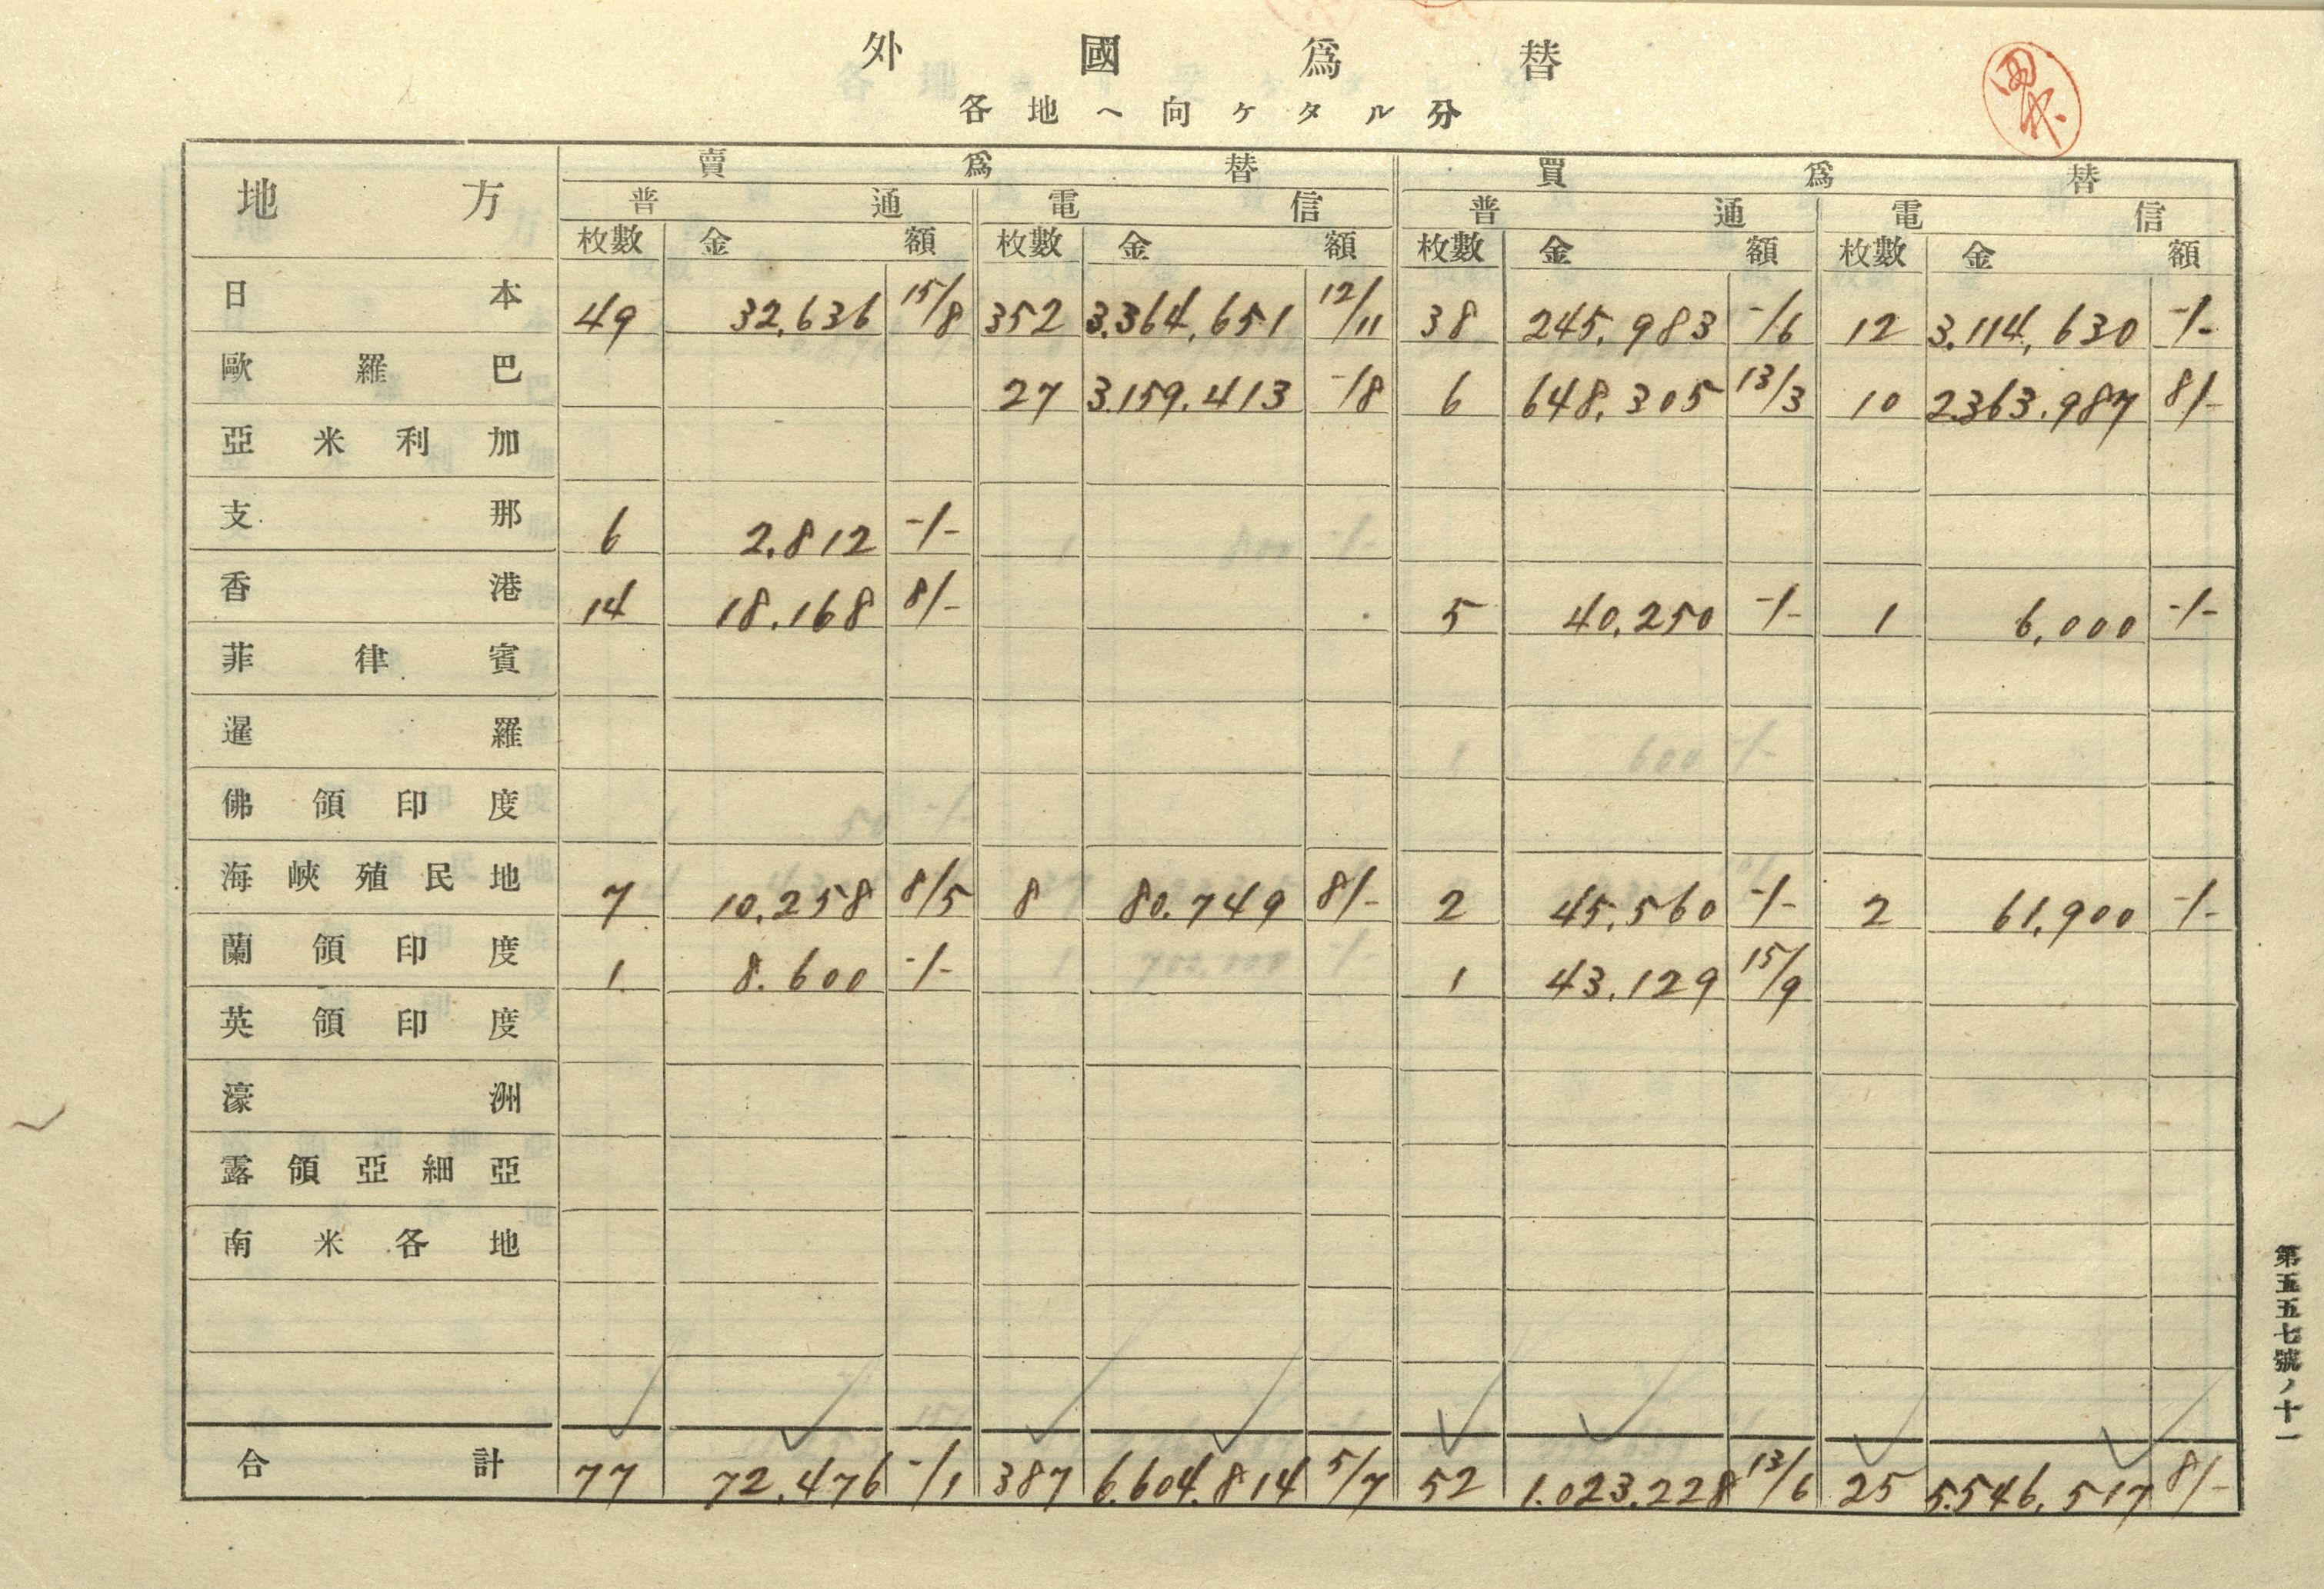 外國爲替
各地ヘ向ケタル分
地方 賣爲替 買爲替
普通 電信 普通 電信
枚數 金額 枚數 金額 枚數 金額 枚數 金額
日本 49 32,636 15/8 352 3,364,651 12/11 38 245,983 -/6 12 3,114,630 -/-
歐羅巴 27 3,159,413 -/8 6 648,305 13/3 10 2,363,987 8/-
亞米利加
支那 6 2,812 -/-
香港 14 18,168 8/- 5 40,250 -/- 1 6,000 -/-
菲律賓
暹羅
佛領印度
海峽殖民地 7 10,258 8/5 8 80,749 8/- 2 45,560 -/- 2 61,900 -/-
蘭領印度 1 8,600 -/- 1 43,129 15/9
英領印度
濠洲
露領亞細亞
南米各地
合計 77 72,476 -/1 387 6,604,814 5/7 52 1,023,228 13/6 25 5,546,517 8/-
第五五七號ノ十一